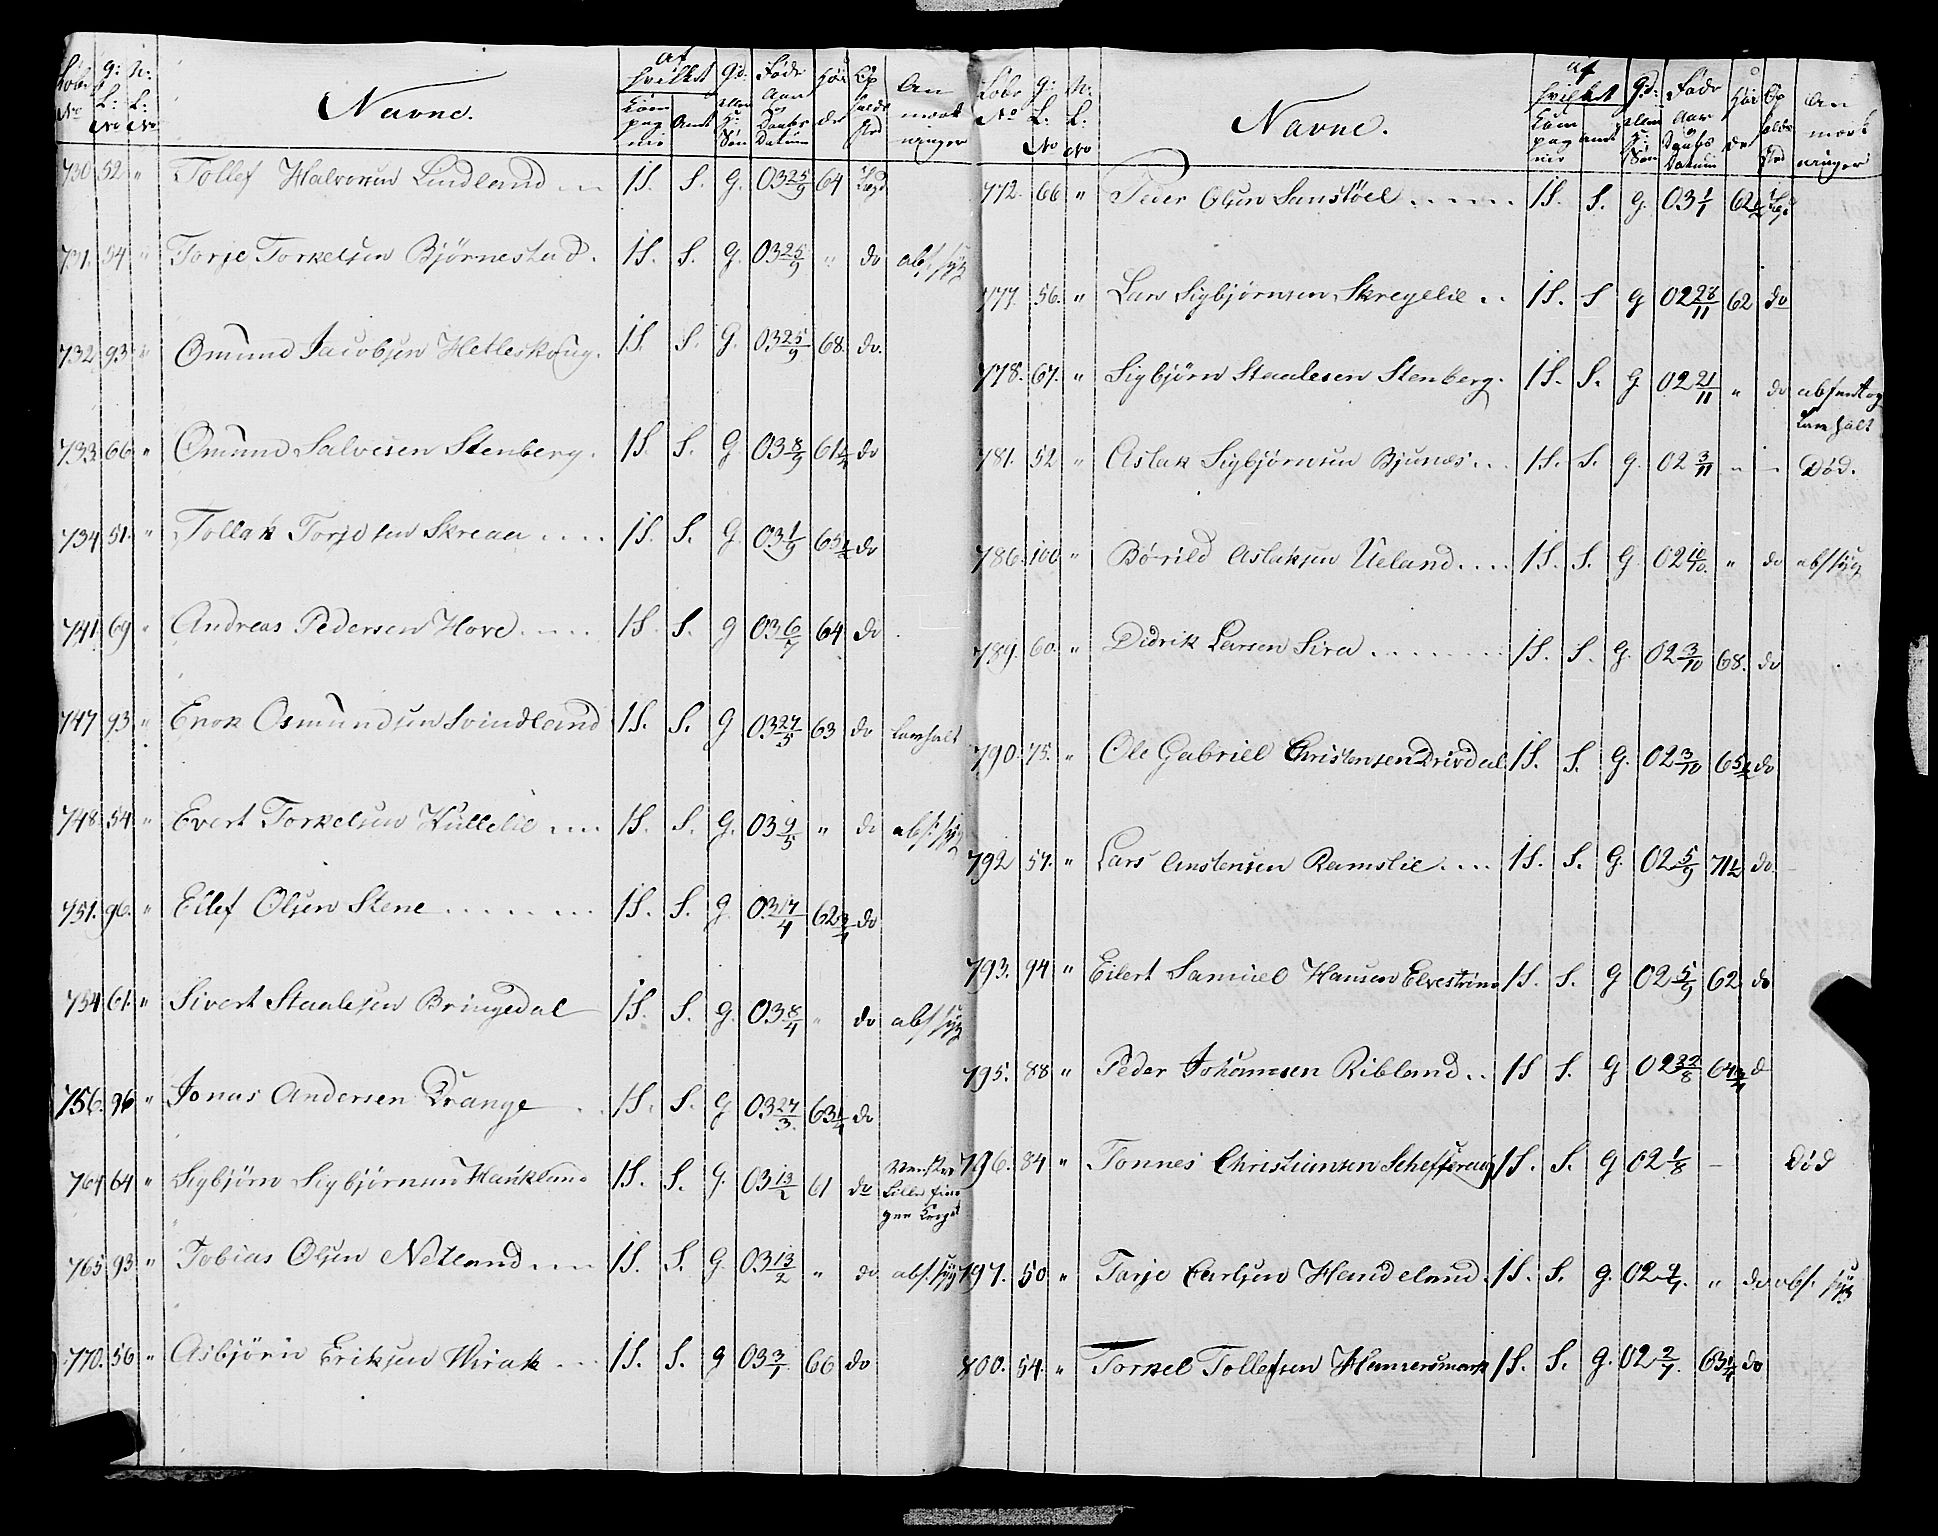 Løbe No | g: L: No | n: L: No | Navne. | af hvilket Kom pag nie | Amt | Gd: eller H: Søn | Føde Aar og Daabs Datum | Høi de | Op holds sted | An mærk ninger
730 | 52 | " | Tollef Halvorsen Lindland | 1S. | S. | G. | 03 25/9 | 64 | i Lægd
731. | 54 | " | Torje Torkelsen Bjørnestad. | 1S. | S. | G. | 03 25/9 | " | do | abs: syg
732 | 93 | " | Omund Jacobsen Hetleskoug. | 1S. | S. | G. | 03 25/9 | 68. | do.
733. | 66 | " | Omund Salvesen Stenberg. | 1S. | S. | G | 03 8/9 | 61 1/2 | do
734 | 51. | " | Tollak Torjesen Skreaa .... | 1S. | S. | G. | 03 1/9 | 65 1/2 | do
741 | 69 | " | Andreas Pedersen Hove .... | 1S. | S. | g | 03 6/7 | 64 | do
747 | 93 | " | Enok Osmundsen Svindland | 1S. | S. | g | 03 27/5 | 63 | do | Lamhalt
748 | 54 | " | Evert Torkelsen Hullelie .... | 1S. | S. | G. | 03 9/5 | " | do | abs: syg
751. | 96. | " | Ellef Olsen Stene ....... | 1S. | S. | G. | 03 17/4 | 62 3/4 | do
754 | 61. | " | Sivert Staalesen Bringedal | 1S. | S. | G. | 03 8/4 | " | do | abs syg
756. | 96 | " | Jonas Andersen Drange | 1S. | S. | G | 03 27/3. | 63 1/4 | do
764 | 64 | " | Sigbjørn Sigbjørnsen Haukland | 1S. | S. | G. | 03 13/2 | 61 | do | Venstre Lille fin ger Kroget
765 | 93 | " | Tobias Olsen Netland .... | 1S. | S. | G. | 03 13/2 | " | do | abs. syg
770. | 56 | " | Asbjørn Eriksen Wirak ... | 1S. | S. | g | 03 3/1 | 66 | do
Løbe No | G: L: No | n: L: No | Navne. | af hvilket Kom pag nie | amt | Gd: eller H: Søn | Føde Aar og Daabs Datum | Høi de | Op holds sted | An mærk ninger
772. | 66 | " | Peder Olsen Sanstøel ...... | 1S. | S. | G. | 03 1/1 | 62 1/2 | i Lægd
777. | 56. | " | Lars Sigbjørnsen Skregelie .. | 1S. | S | g | 02 28/11 | 62 | do
778. | 67. | " | Sigbjørn Staalesen Stenberg. | 1S. | S. | G | 02 21/11 | " | do | absent og Lamhalt
781. | 52 | " | Aslak Sigbjørnsen Bjunes ... | 1S. | S. | g. | 02 3/11 | " | " | Død.
786. | 100 | " | Børild Aslaksen Ueland .... | 1S. | S. | G | 02 10/10. | " | do | abs syg
789. | 60. | " | Didrik Larsen Sira ....... | 1S. | S. | G. | 02 3/10 | 68. | do
790. | 75. | " | Ole Gabriel Christensen Drivdal | 1S. | S. | G. | 02 3/10 | 65 1/2 | do
792 | 57. | " | Lars Anstensen Ramslie .... | 1S. | S. | G. | 02 5/9 | 71 1/2 | do
793. | 94 | " | Eilert Samuel Hansen Elvestrøm | 1S. | S. | G | 02 5/9 | 62 | do
795. | 88 | " | Peder Johannesen Ribland .. | 1S | S. | g | 02 22/8 | 64 3/4 | d
796. | 84 | " | Tønnes Christiansen | 1S. | S. | g | 02 1/8 | – | Død
797. | 50 | " | Tarje Carlsen Handeland. | 1S. | S. | g. | 02 9/7. | " | do | abs. syg
800. | 54. | " | Torkel Tollefsen Hamersmark | 1S. | S. | g. | 02 2/7. | 63 1/4 | do